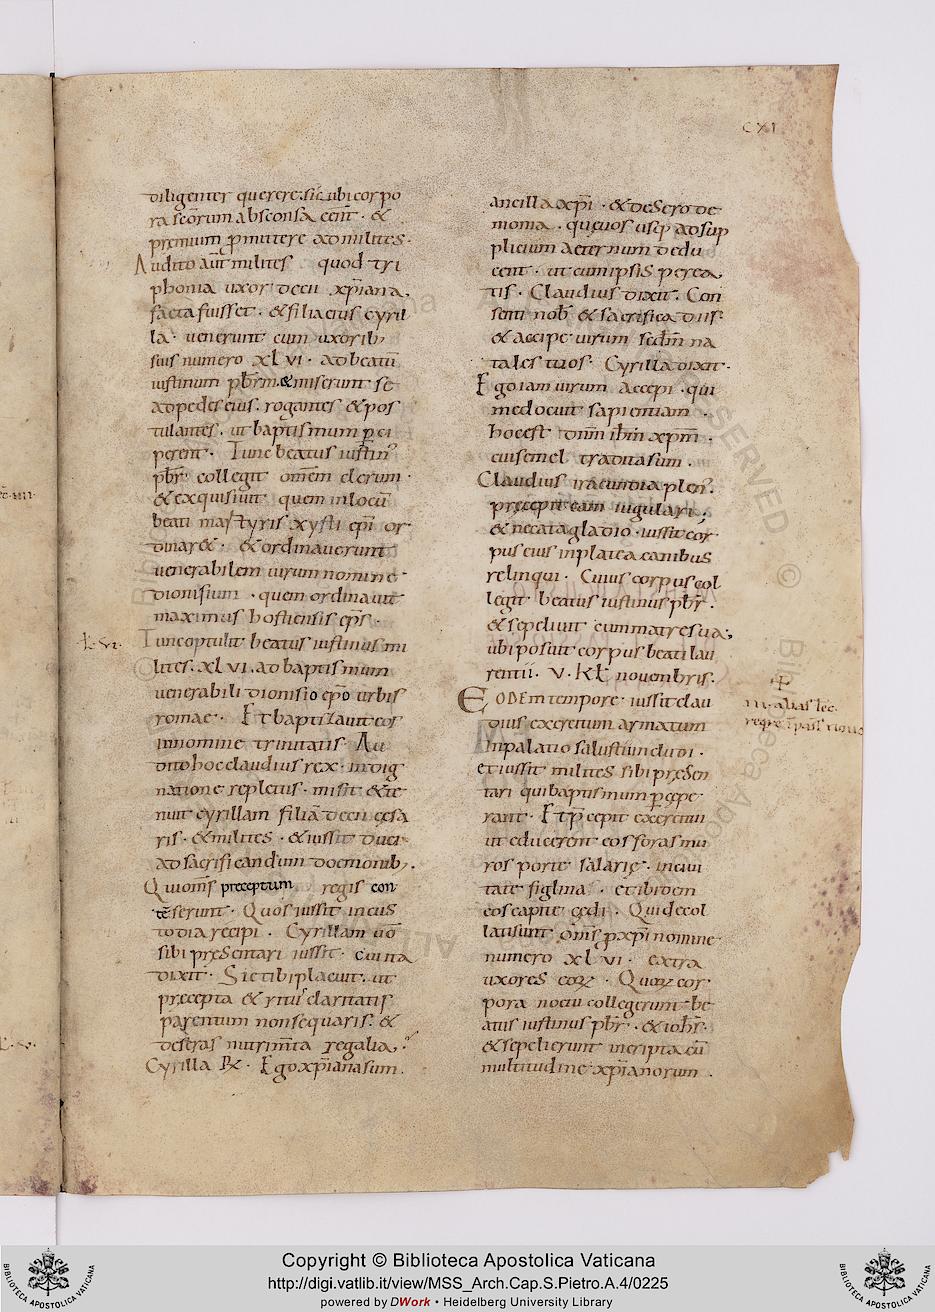 CXI
diligenter querere. sic ubi corpo
ra scōrum absconsa eent̄ · &
premium p̄mittere ad milites·
Audito aut̄ milites quod tri
phonia uxor decii xp̄iana,
facta fuisset · & filia eius cyril
la · uenerunt cum uxorib;
suis numero xl vi · ad beatū
iustinum pb̄rm. & miserunt se
ad pedes eius. rogantes & pos
tulantes. ut baptismum p̄ci
perent · Tunc beatus iustin'
pb̄r · collegit om̄em clerum ·
& exquisiuit quem in locū
beati martyris xysti ep̄i or
dinar& · & ordinauerunt
uenerabilem uirum nomine
dionisium · quem ordinauit
maximus hostiensis ep̄s ·
Tunc optulit beatus iustinus mi
lites. xl vi. ad baptismum
uenerabili dionisio ep̄o urbis
romae · Et baptizauit eos
in nomine trinitatis · Au
dito hoc claudius rex · indig
natione repletus · misit & te
nuit cyrillam filiā decii cesa
ris · & milites · & iussit duci
ad sacrificandum doemonib; .
Qui om̄s preceptum regis con
tēserunt · Quos iussit in cus
todia recipi . Cyrillam uō
sibi presentari iussit · cui ita
dixit · Sic tibi placuit . ut
precepta & ritus claritatis
parentum non sequaris. &
deseras nutrim̄ta regalia,
Cyrilla R̸ · Ego xp̄iana sum .
ancilla xp̄i · & desero de
monia · qui uos usq; ad sup
plicium aeternum dedu
cent · ut cum ipsis perea,
tis · Claudius dixit · Con
senti nob̄ & sacrifica diis·
& accipe uirum secdm̄ na
tales tuos · Cyrilla dixit ·
Ego iam uirum accepi · qui
me docuit sapientiam ·
hoc est dn̄m ih̄m xp̄m ·
cui semel tradita sum .
Claudius iracundia plen'.
precepit eam iugulari;
& necata gladio · iussit cor
pus eius in platea canibus
relinqui · Cuius corpus col
legit beatus iustinus pb̄r ·
& sepeliuit cum matre sua,
ubi posuit corpus beati lau
rentii. V. Kt̄ nouembris.
EODEm tempore · iussit clau
dius exercitum armatum
in palatio salustii induci ·
et iussit milites sibi presen
tari qui baptismum p̄cepe
rant · Et p̄cepit exercitui
ut educerent eos foras mu
ros porte salarie · in ciui
tate figlina · et ibidem
eos capite cedi · Qui decol
lati sunt om̄s p̄ xp̄i nomine
numero xl vi · extra
uxores eoꝝ · Quoꝝ cor
pora noctu collegerunt be
atus iustinus pb̄r · & ioh̄s·
& sepelierunt in cripta cū
multitudine xp̄ianorum .
Copyright © Biblioteca Apostolica Vaticana
http://digi.vatlib.it/view/MSS_Arch.Cap.S.Pietro.A.4/0225
powered by DWork • Heidelberg University Library
BIBLIOTECA APOSTOLICA VATICANA
BIBLIOTECA APOSTOLICA VATICANA